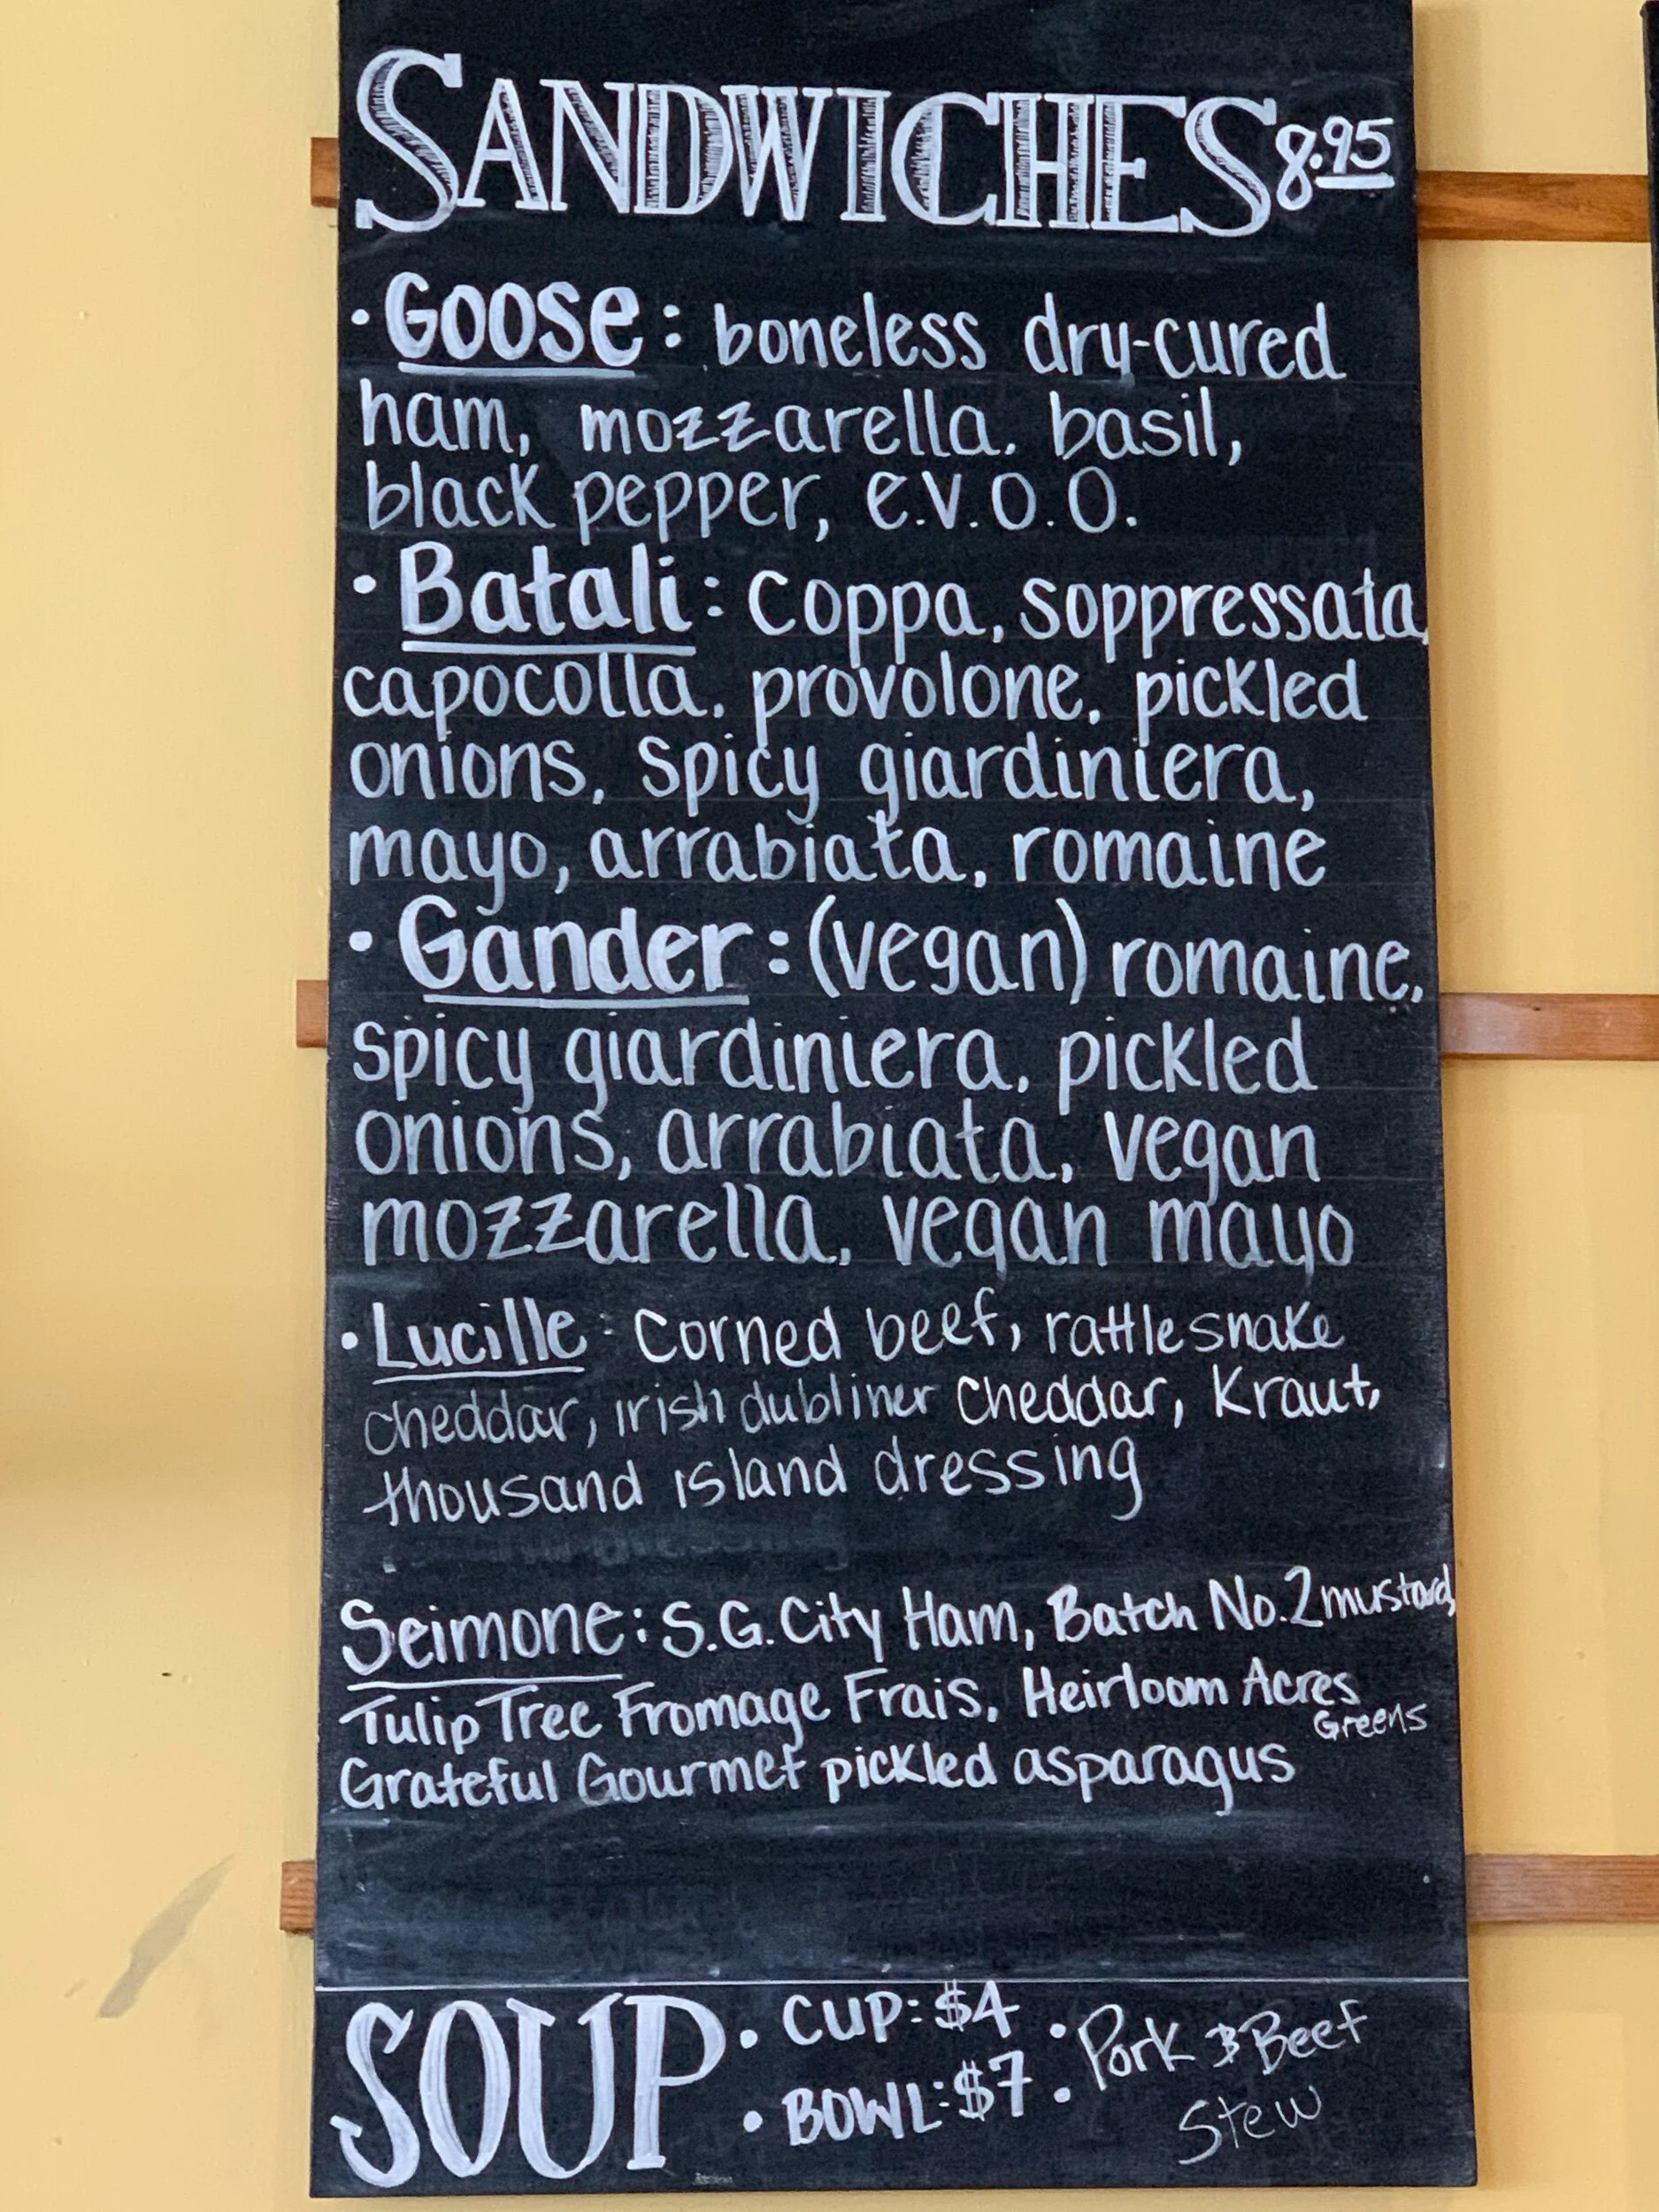 SANDWICHES 8.95
• Goose: boneless dry-cured
ham, mozzarella, basil,
black pepper, e.v.o.o.
• Batali: Coppa, Soppressata,
capocolla, provolone, pickled
onions, spicy giardiniera,
mayo, arrabiata, romaine
• Gander: (vegan) romaine,
spicy giardiniera, pickled
onions, arrabiata, vegan
mozzarella, vegan mayo
• Lucille: Corned beef, rattlesnake
cheddar, irish dubliner cheddar, Kraut,
thousand island dressing
Seimone: S.G. City Ham, Batch No. 2 mustard,
Tulip Tree Fromage Frais, Heirloom Acres
Greens
Grateful Gourmet pickled asparagus
SOUP • CUP: $4 • Pork & Beef
• BOWL: $7 • Stew